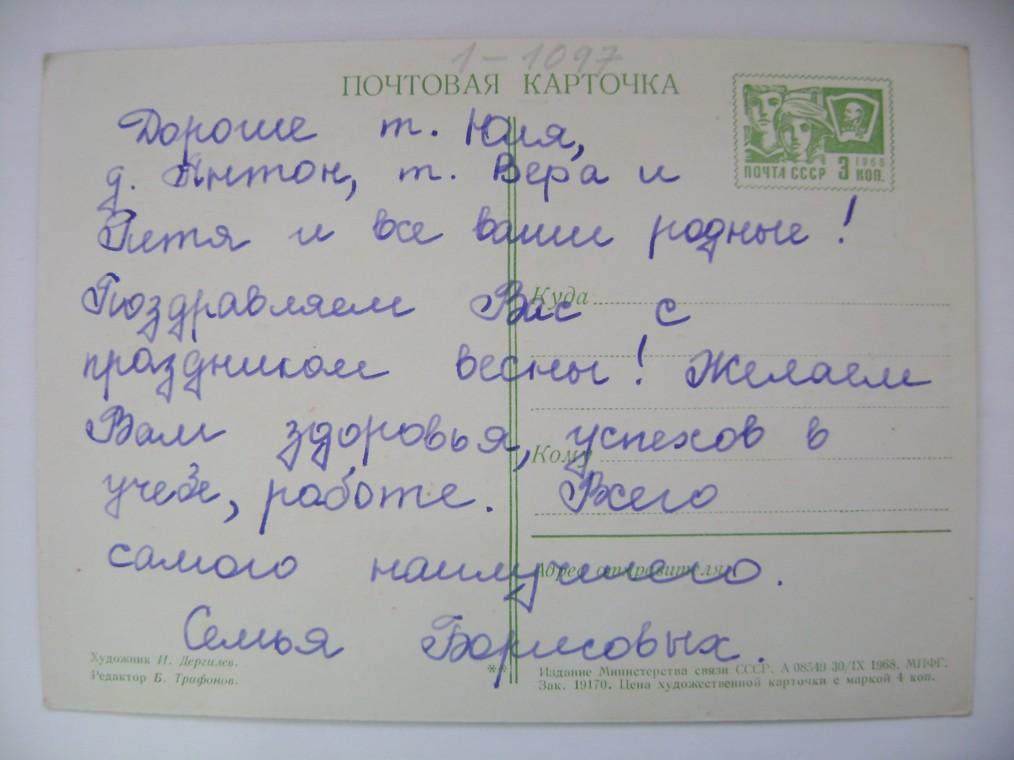 1-1097
ПОЧТОВАЯ КАРТОЧКА
1968
ПОЧТА СССР 3 КОП.
Дорогие т. Юля,
д. Антон, т. Вера и
Петя и все ваши родные!
Куда
Поздравляем Вас с
праздником весны! Желаем
Вам здоровья, успехов в
Кому
учебе, работе. Всего
самого наилучшего.
Адрес отправителя
Семья Борисовых.
Художник И. Дергилев.
Редактор Б. Трифонов.
**
Издание Министерства связи СССР. А 08549 30/IX 1968. МПФГ.
Зак. 19170. Цена художественной карточки с маркой 4 коп.